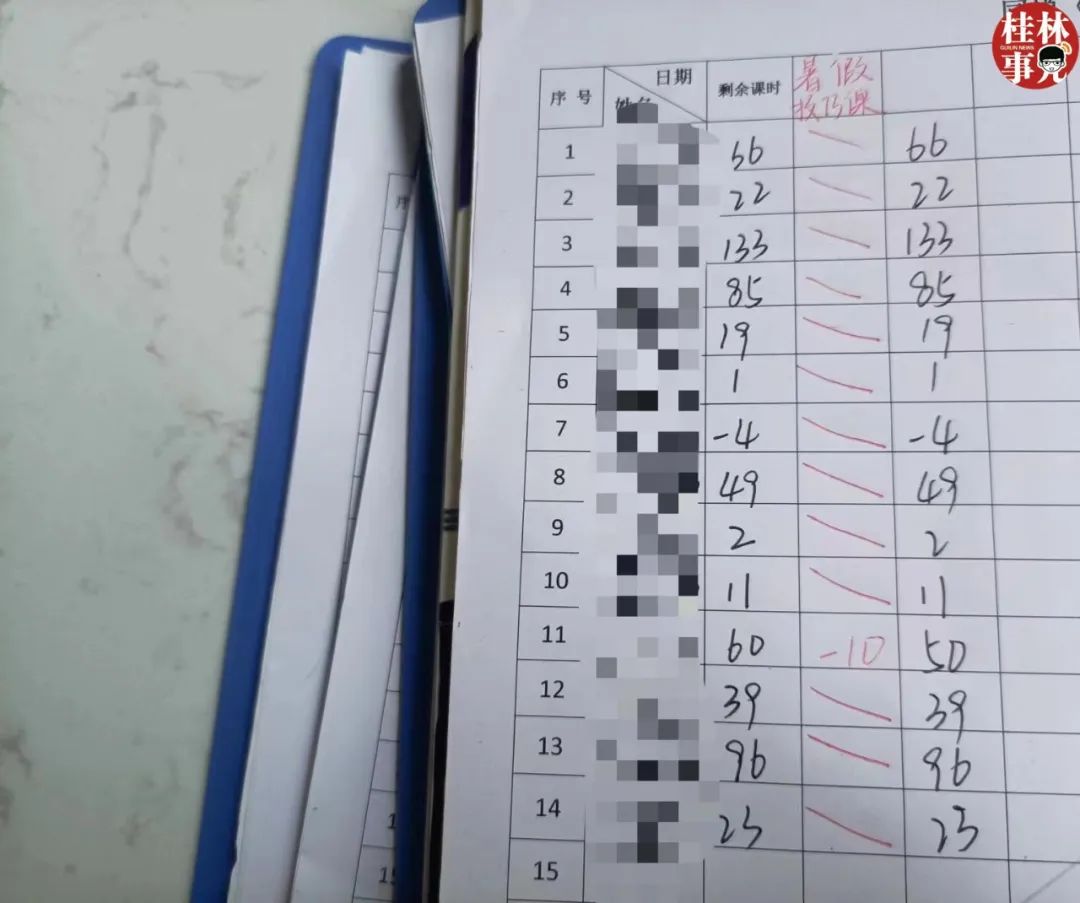 桂林
GUILIN NEWS
事儿
序号 日期 剩余课时 暑假
姓名 技巧课
1 66
2 22 22
3 133 133
4 85 85
5 19 19
6 1 1
7 -4 -4
8 49 49
9 2 2
10 11 11
11 60 -10 50
12 39 39
13 96 96
14 23 23
15